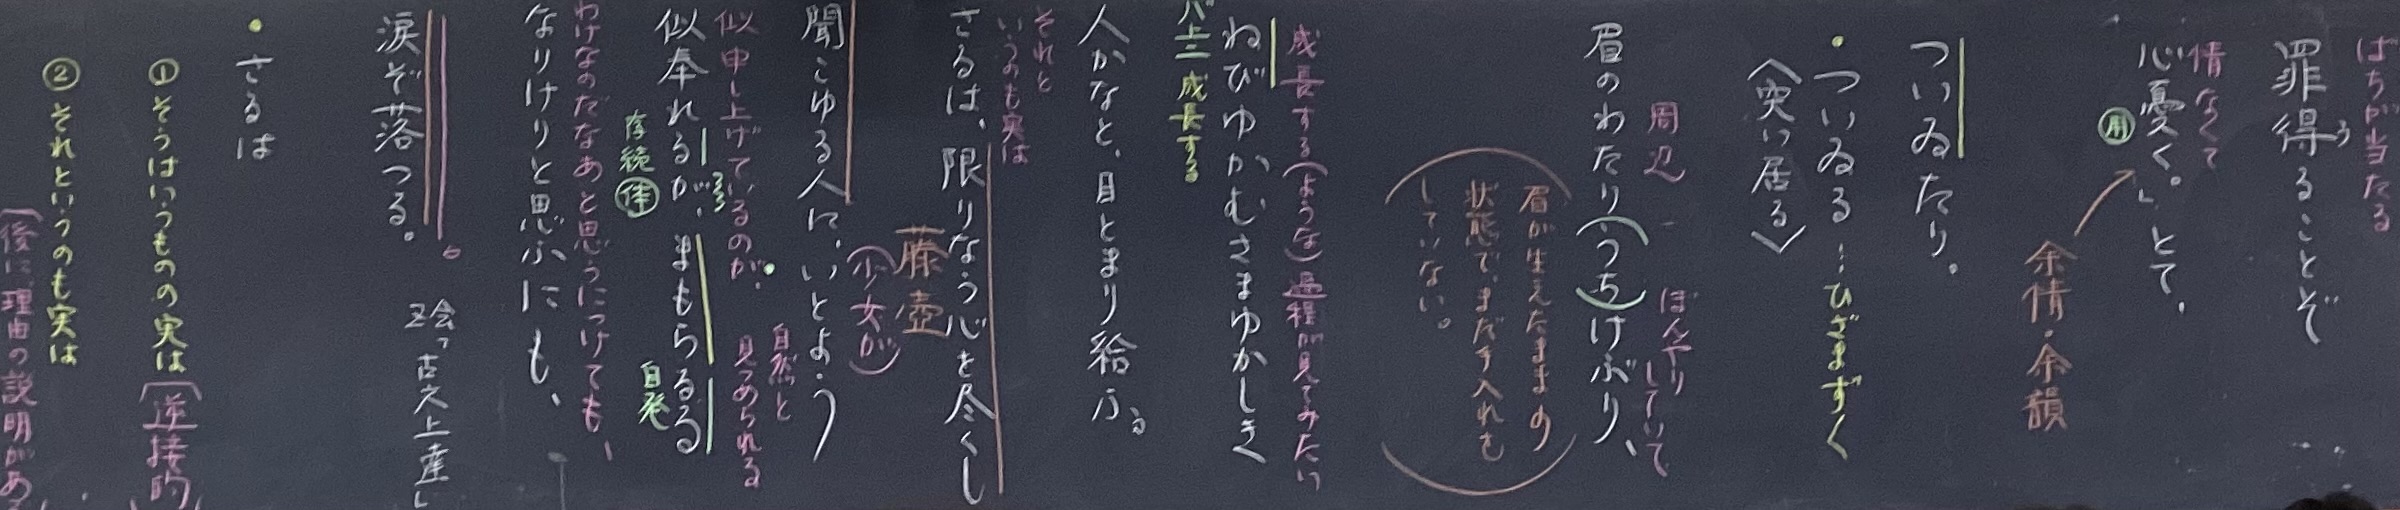 ばちが当たる
罪得ることぞ
う
情なくて
心憂く。」とて、
用
余情・余韻
ついゐたり。
・ついゐる…ひざまずく
〈突い居る〉
周辺
ぼんやりしていて
眉のわたりうちけぶり、
眉が生えたままの
状態で、まだ手入れを
していない。
成長する(ような)過程が見てみたい
ねびゆかむさまゆかしき
バ上二 成長する
人かなと、目とまり給ふ。
る
それと
いうのも実は
さるは、限りなう心を尽くし
藤壺
(少女が)
聞こゆる人に、いとよう
似申し上げているのが、
自然と
見つめられる
似奉れるが、まもらるる
存続
体
自発
わけなのだなあと思うにつけても、
なりけりと思ふにも、
涙ぞ落つる。
Z会「古文上達」
・さるは
① そうはいうものの実は(逆接的)
② それというのも実は
(後に理由の説明がある